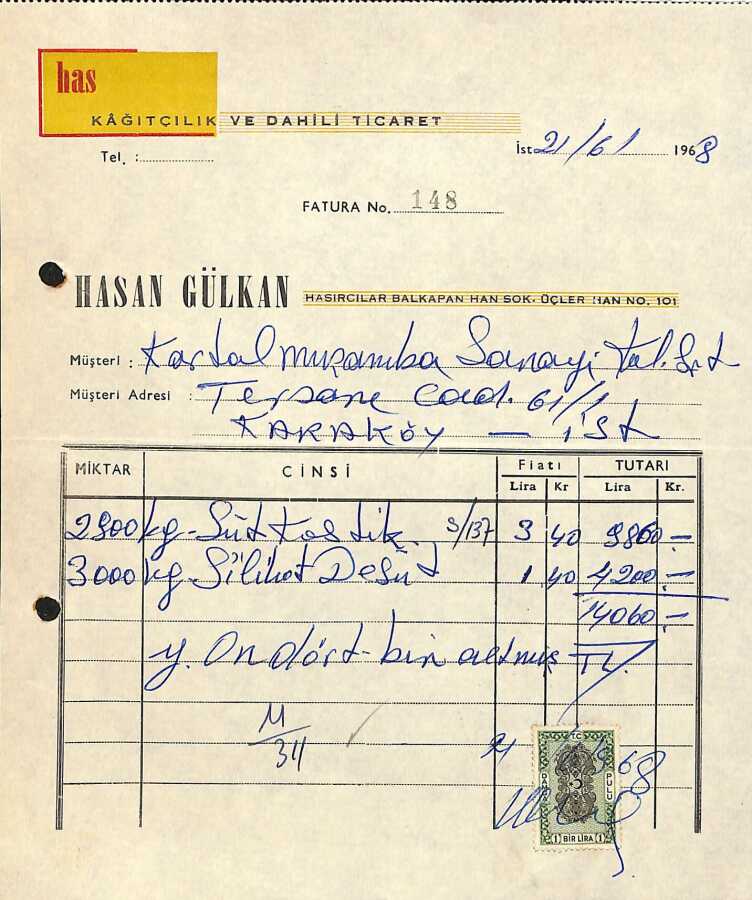 has
KÂĞITÇILIK VE DAHİLİ TİCARET
Tel. :
İst 21/6/ 1968
FATURA No. 148
HASAN GÜLKAN HASIRCILAR BALKAPAN HAN SOK. ÜÇLER HAN NO. 101
Müşteri : Kartal muşamba Sanayi
Müşteri Adresi : Tersane Cad. 61/1
KARAKÖY — İST
MİKTAR CİNSİ Fiatı TUTARI
Lira Kr Lira Kr.
2900 kg - Süt Kostik 3/137 3 40 9860 -
3000 kg - Silikat 1 40 4200 -
14060 -
y. On dört bin altmış TL.
21 6 1968
T.C.
DAMGA PULU
1 BİR LİRA 1